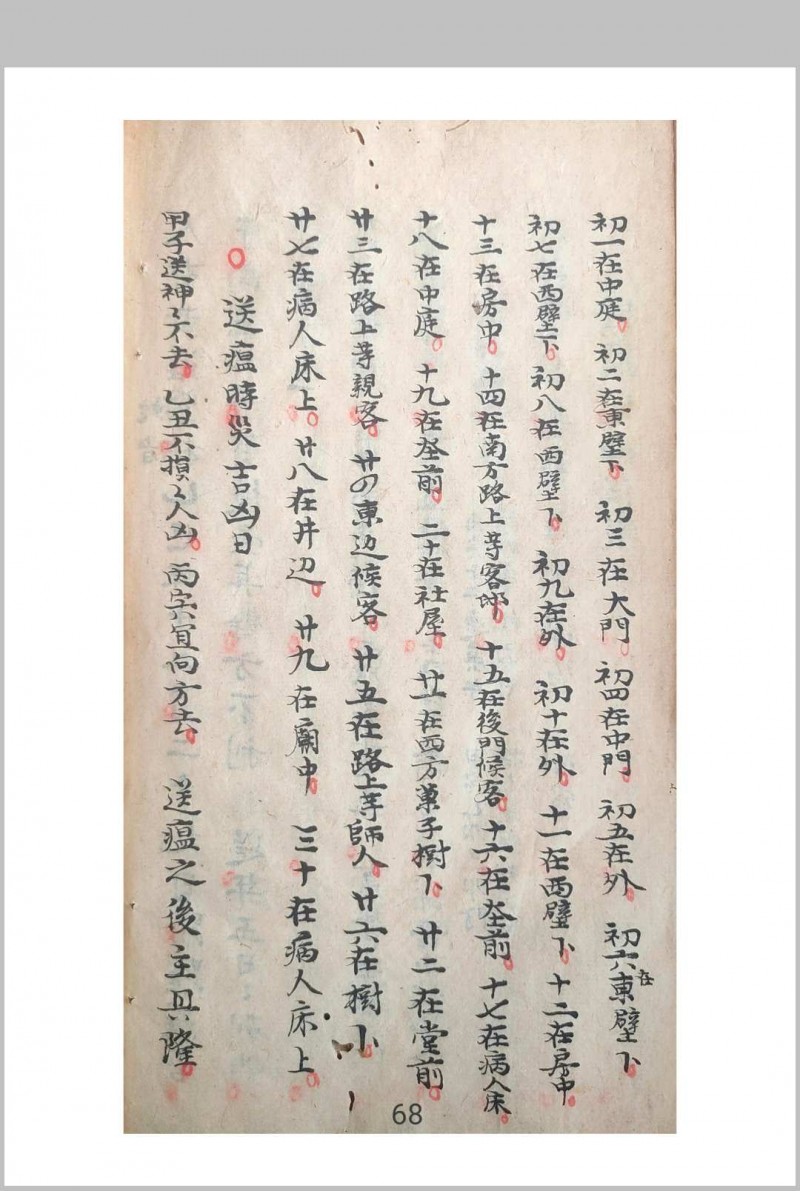 初一在中庭 初二在東壁下 初三在大門 初四在中門 初五在外 初六在東壁下
初七在西壁下 初八在西壁下 初九在外 初十在外 十一在西壁下 十二在房中
十三在房中 十四在南方路上等客 十五在後門候客 十六在灶前 十七在病人床
十八在中庭 十九在灶前 二十在社屋 廿一在西方菓子樹下 廿二在堂前
廿三在路上等親客 廿四東边候客 廿五在路上等師人 廿六在樹下
廿七在病人床上 廿八在井边 廿九在廟中 三十在病人床上
送瘟時災吉凶日
甲子送神〻不去 乙丑不損〻人凶 丙寅宜向方去 送瘟之後主興隆
68